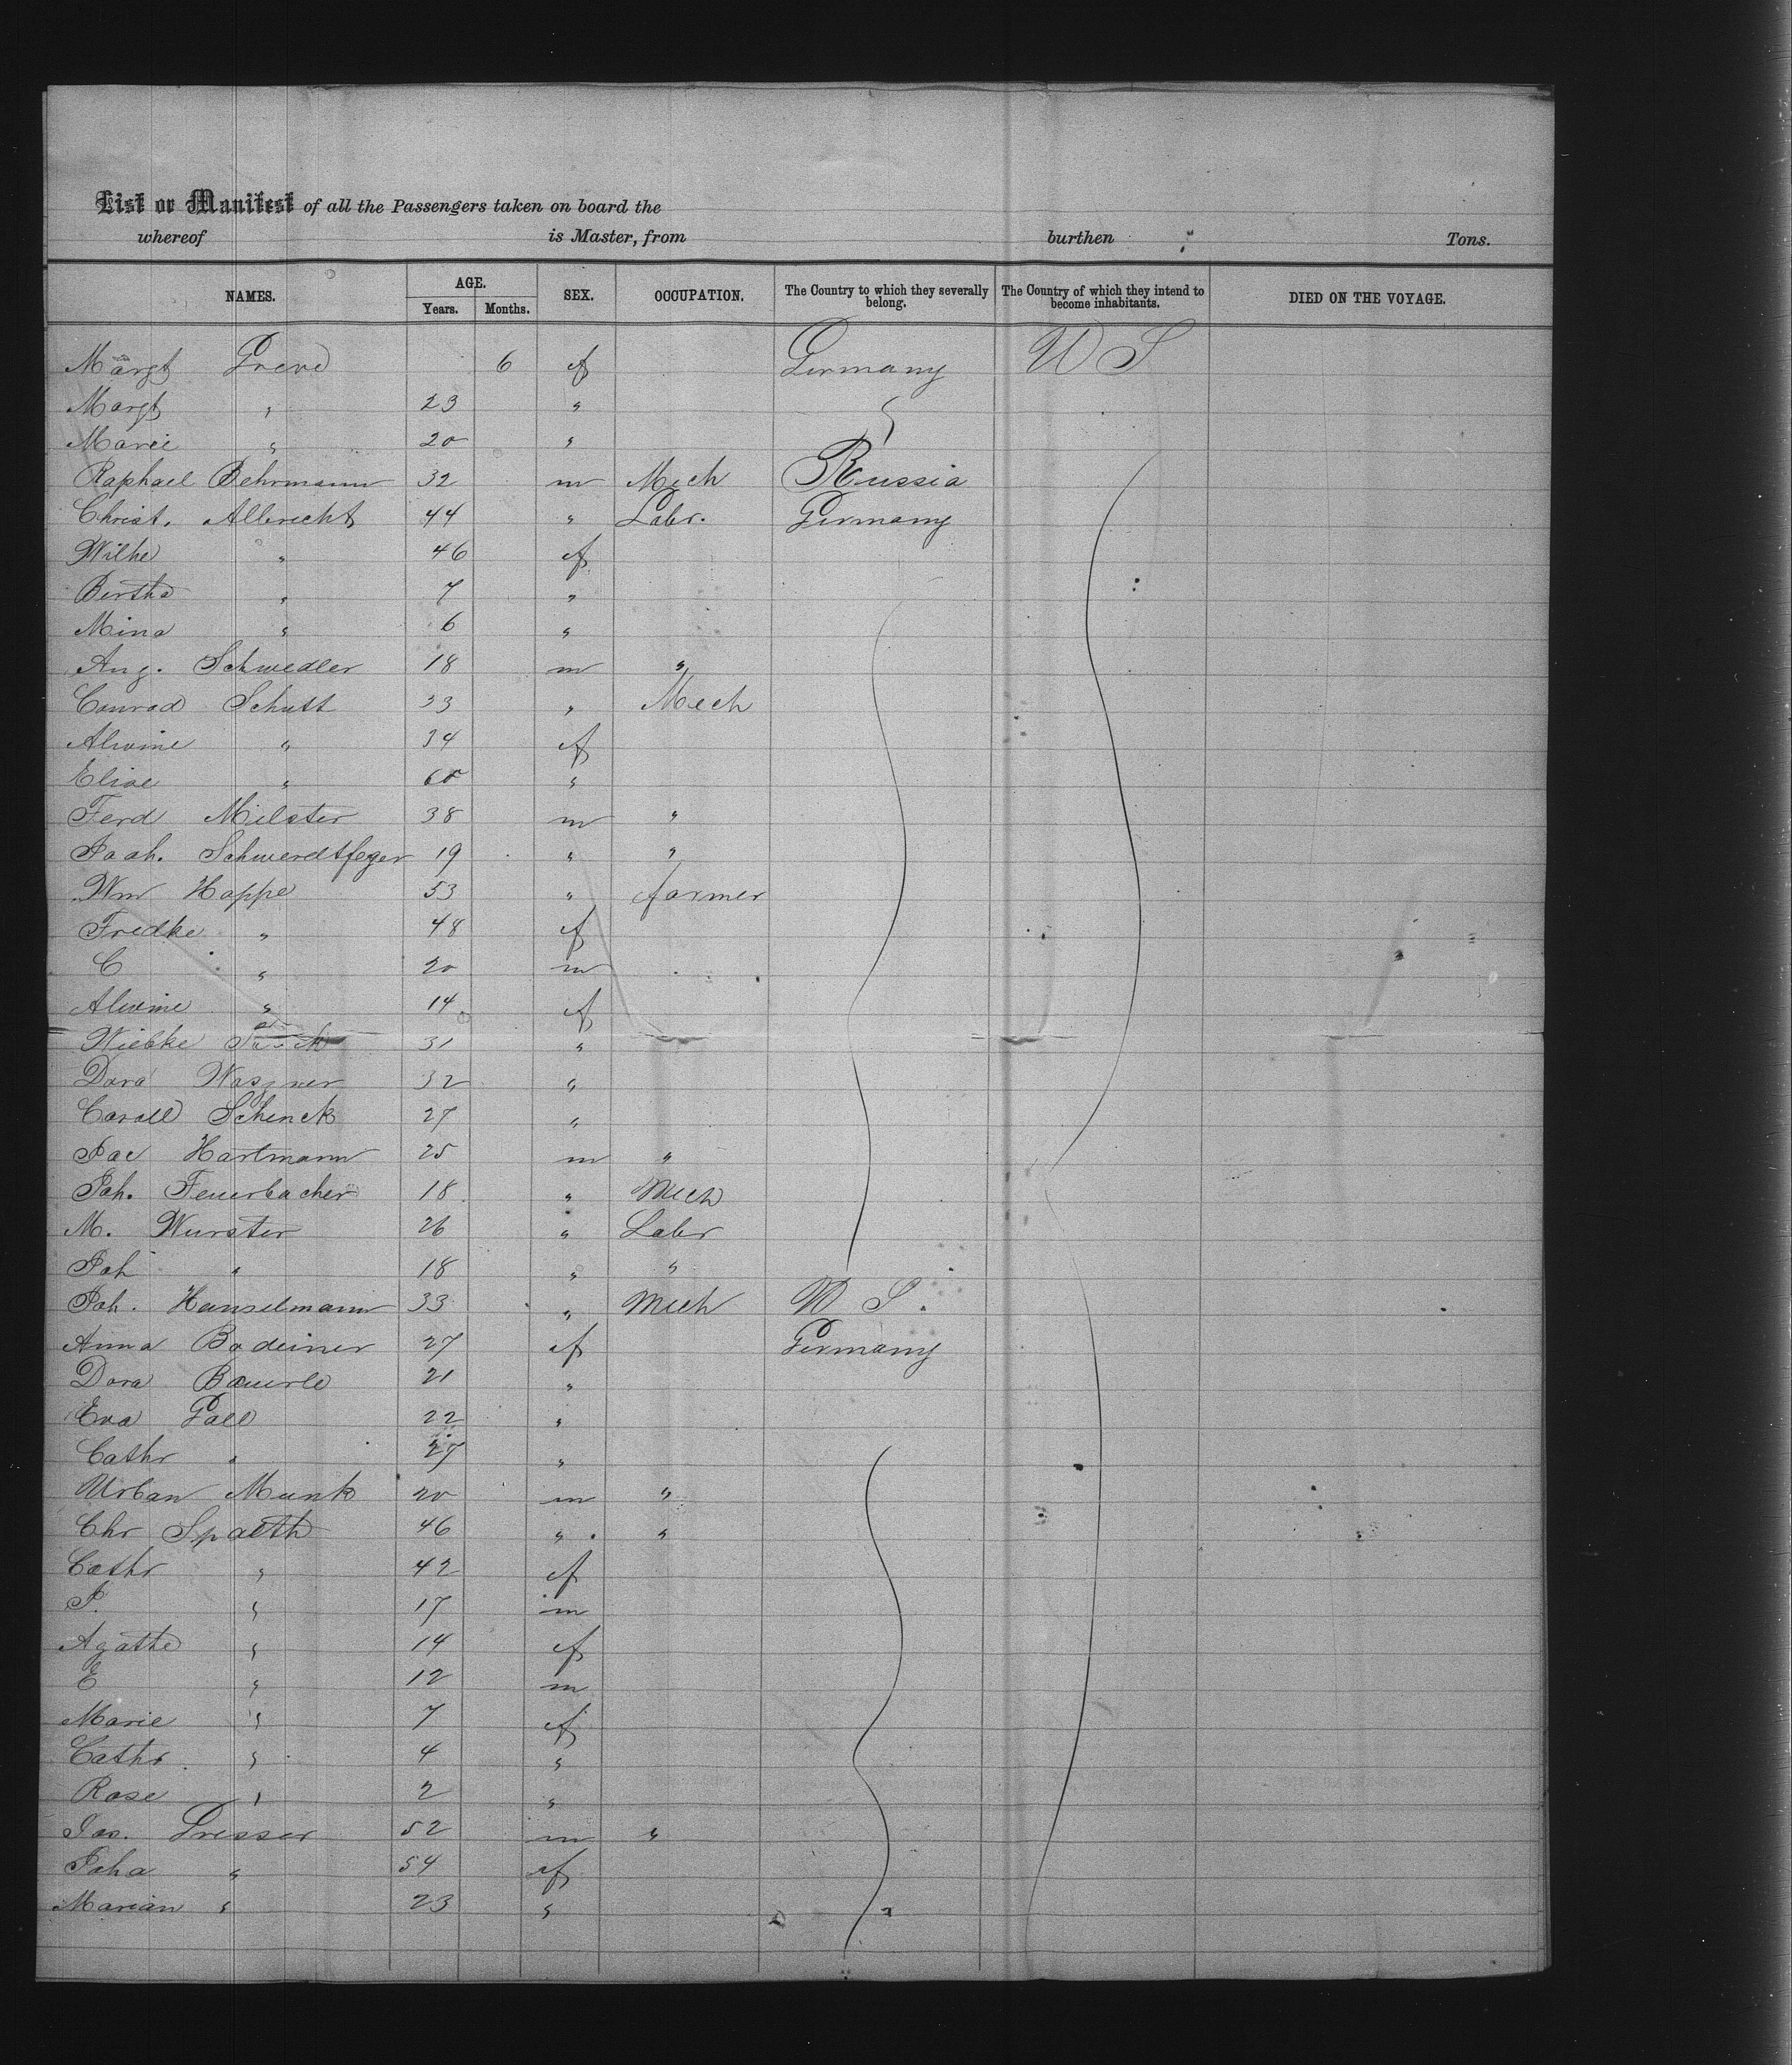 List or Manifest of all the Passengers taken on board the
whereof is Master, from burthen Tons.
NAMES. AGE. Years. Months. SEX. OCCUPATION. The Country to which they severally belong. The Country of which they intend to become inhabitants. DIED ON THE VOYAGE.
Margt Greve 6 f Germany U S
Margt " 23 "
Marie " 20 "
Raphael Behrmann 32 m Mech Russia
Christ. Albrecht 44 " Labr. Germany
Wilhe " 46 f
Bertha " 7 "
Mina " 6 "
Aug. Schwedler 18 m "
Conrad Schutt 33 " Mech
Alwine " 34 f
Elise " 60 "
Ferd Milster 38 m "
Joah. Schwerdtfeger 19 " "
Wm Hoppe 53 " farmer
Fredke " 48 f
C " 20 m
Alwine " 14 f
Wiebke 31 "
Dora Wagner 32 "
Caroll Schenck 27 "
Jac Hartmann 25 m "
Joh. Feuerbacher 18 " Mech
M. Wurster 26 " Labr
Joh " 18 " "
Joh. Hanselmann 33 " Mech U S.
Anna Badeiner 27 f Germany
Dora Bauerle 21 "
Eva Gall 22 "
Cathr " 27 "
Urban Munk 20 m "
Chr Spaeth 46 " "
Cathr " 42 f
J. " 17 m
Agathe " 14 f
E " 12 m
Marie " 7 f
Cathr " 4 "
Rose " 2 "
Jos. Dresser 52 m "
Joha " 54 f
Marian " 23 "